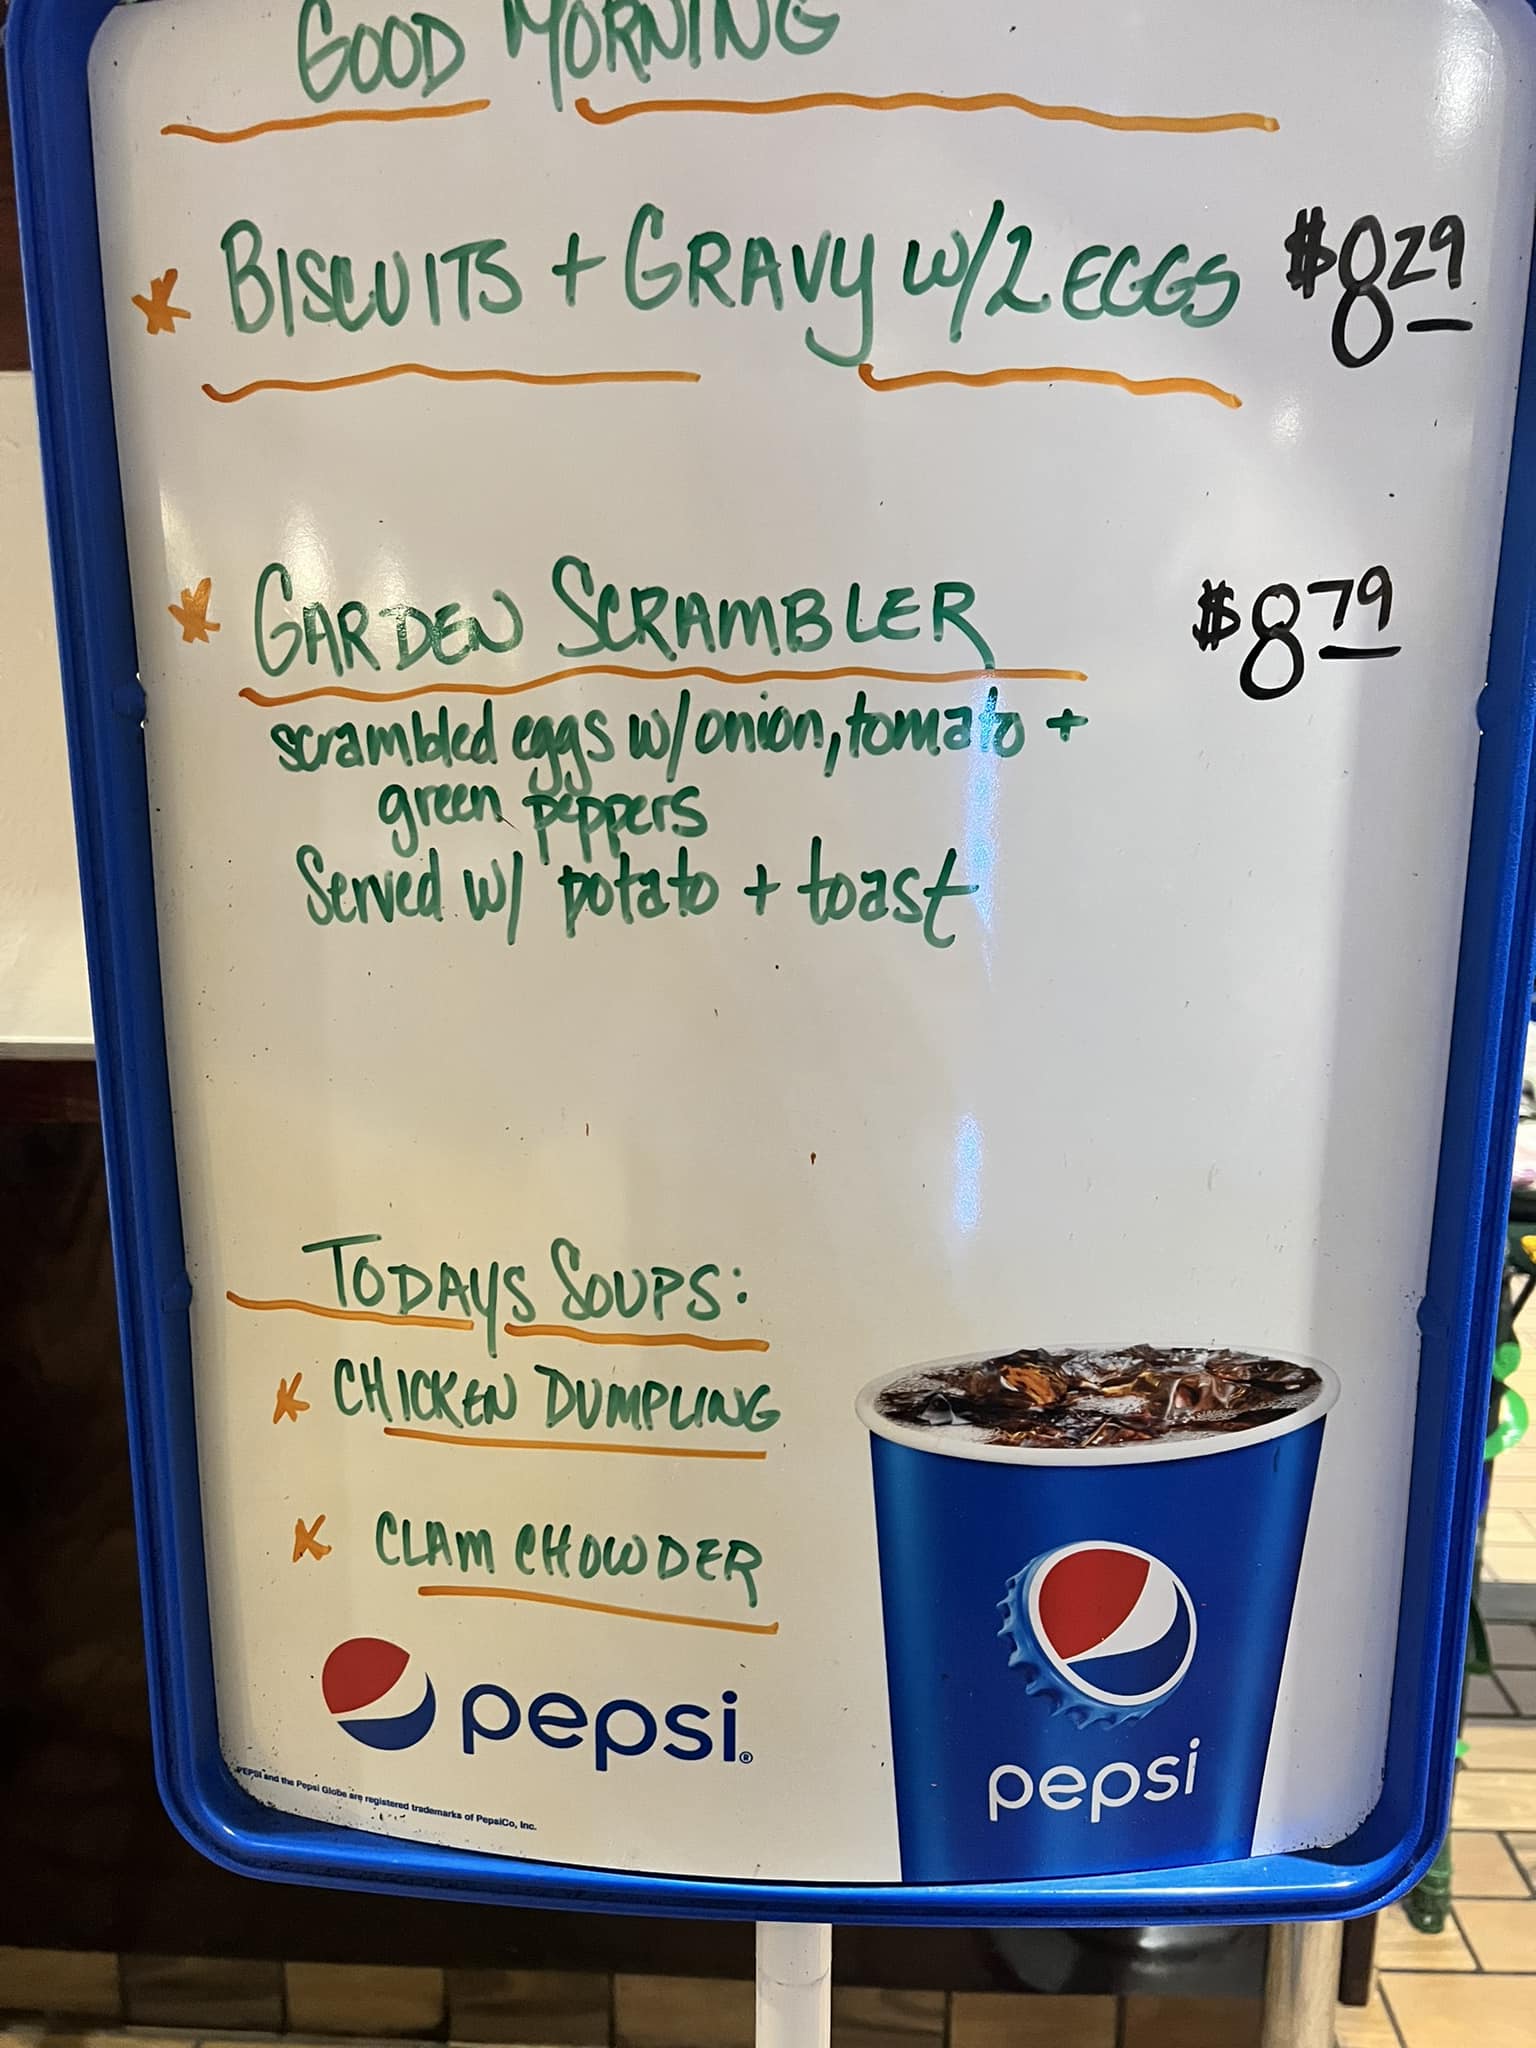 GOOD MORNING
* BISCUITS + GRAVY W/2 EGGS $8 29
* GARDEN SCRAMBLER $8 79
scrambled eggs w/onion, tomato +
green peppers
Served w/ potato + toast
TODAYS SOUPS:
* CHICKEN DUMPLING
* CLAM CHOWDER
pepsi®
pepsi
PEPSI and the Pepsi Globe are registered trademarks of PepsiCo, Inc.